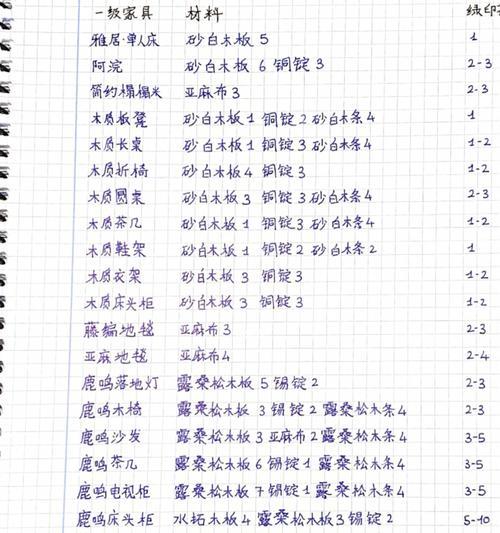 一级家具 材料 绿印
雅居·单人床 砂白木板 5 1
阿浣 砂白木板 6 铜锭 3 2-3
简约榻榻米 亚麻布 3 2-3
木质板凳 砂白木板 1 铜锭 2 砂白木条 4 1
木质长桌 砂白木板 1 铜锭 3 砂白木条 4 1-2
木质折椅 砂白木板 4 铜锭 3 1-2
木质圆桌 砂白木板 3 铜锭 3 砂白木条 4 2-3
木质茶几 砂白木板 1 铜锭 3 砂白木条 4 1-2
木质鞋架 砂白木板 1 铜锭 2 砂白木条 2 1
木质衣架 砂白木板 3 铜锭 3 1-2
木质床头柜 砂白木板 3 铜锭 3 1-2
藤编地毯 亚麻布 3 2-3
亚麻地毯 亚麻布 4 2-4
鹿鸣落地灯 露桑松木板 5 锡锭 2 2-3
鹿鸣木椅 露桑松木板 3 锡锭 2 露桑松木条 4 2-3
鹿鸣沙发 露桑松木板 3 亚麻布 2 露桑松木条 4 3-5
鹿鸣茶几 露桑松木板 6 锡锭 1 露桑松木条 4 3-5
鹿鸣电视柜 露桑松木板 7 锡锭 1 露桑松木条 4 3-5
鹿鸣床头柜 水拓木板 4 露桑松木板 3 锡锭 2 5-10